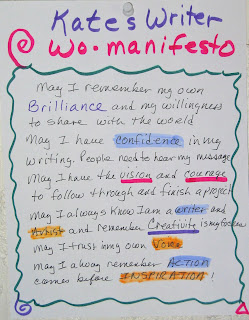 Kate's Writer
Wo•manifesto
May I remember my own
Brilliance and my willingness
to share with the world
May I have confidence in my
writing. People need to hear my message
May I have the vision and courage
to follow through and finish a project
May I always know I am a writer and
Artist and remember Creativity is my
May I trust in my own Voice
May I alway remember ACTION
comes before INSPIRATION!